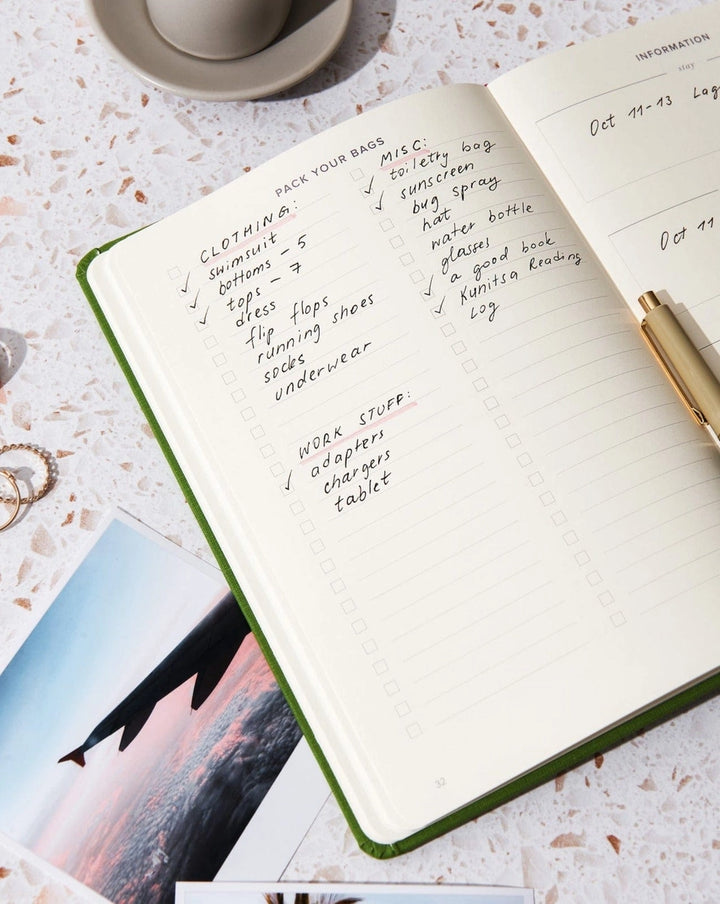 PACK YOUR BAGS
CLOTHING:
✓ swimsuit
✓ bottoms - 5
✓ tops - 7
dress
flip flops
running shoes
socks
underwear
WORK STUFF:
✓ adapters
chargers
tablet
MISC:
✓ toiletry bag
✓ sunscreen
bug spray
hat
water bottle
glasses
✓ a good book
✓ Kunitsa Reading
Log
32
INFORMATION
stay
Oct 11-13
Oct 11